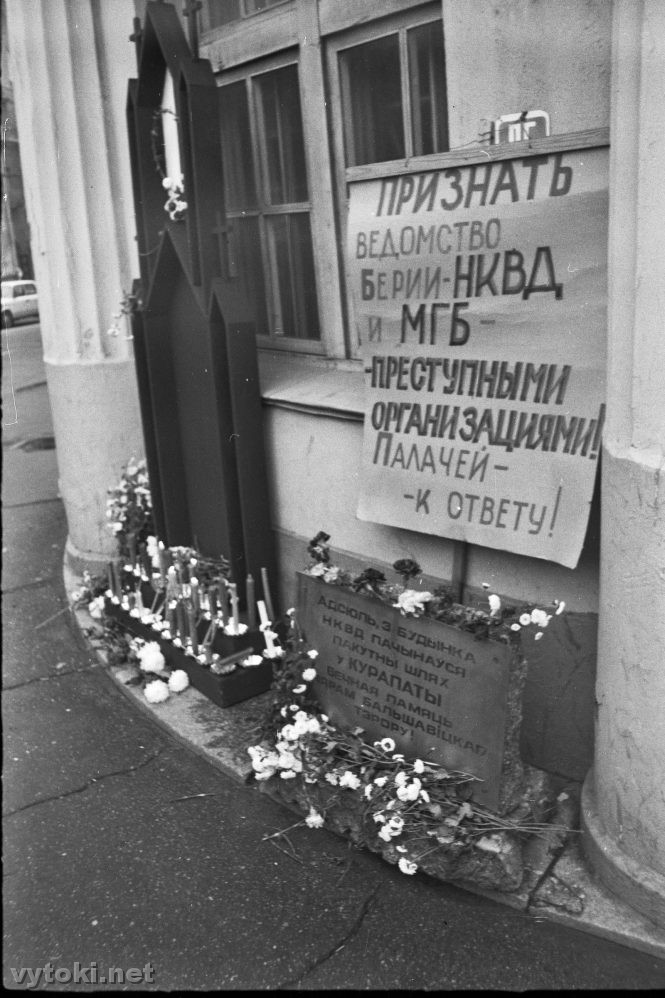 ПРИЗНАТЬ
ВЕДОМСТВО
БЕРИИ-НКВД
И МГБ -
-ПРЕСТУПНЫМИ
ОРГАНИЗАЦИЯМИ!
ПАЛАЧЕЙ -
- К ОТВЕТУ!
АДСЮЛЬ, З БУДЫНКА
НКВД ПАЧЫНАУСЯ
ПАКУТНЫ ШЛЯХ
У КУРАПАТЫ
ВЕЧНАЯ ПАМЯЦЬ
БАЛЬШАВІЦКАГ
ТЭРОРУ!
vytoki.net